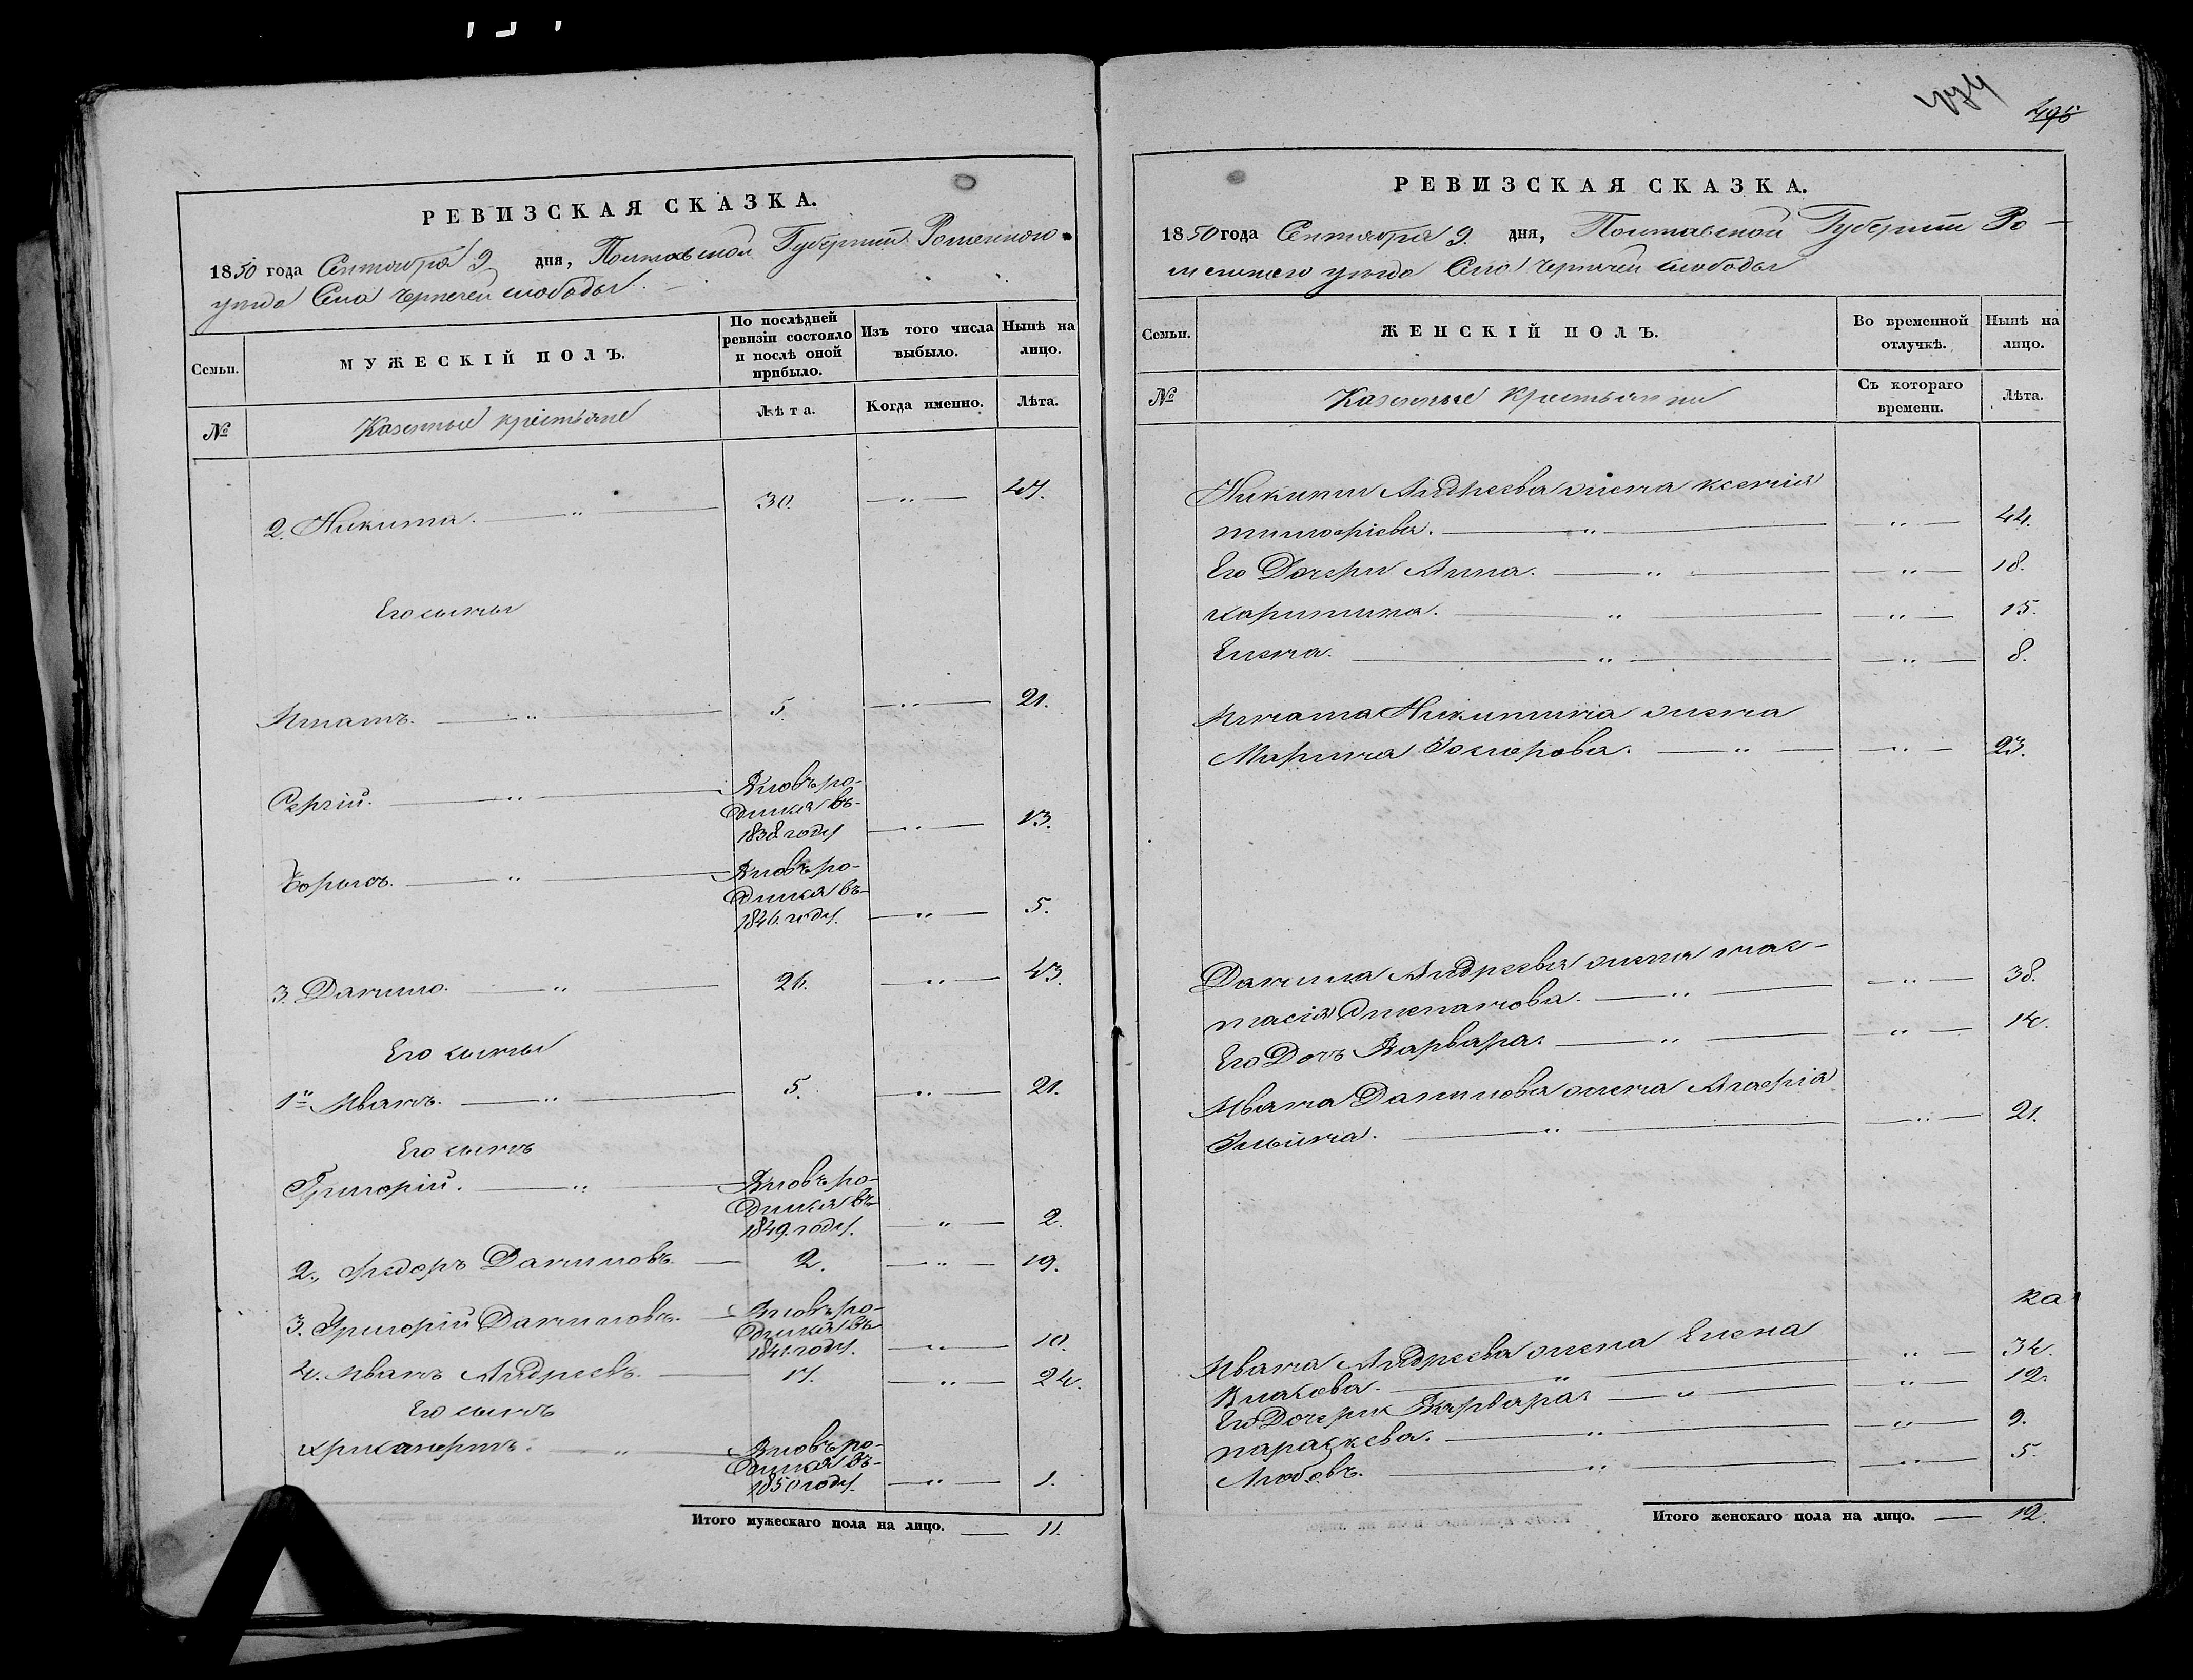 РЕВИЗСКАЯ СКАЗКА.
1850 года Сентября 9 дня, Полтавской Губернии Роменского
уезда Село Чернечей слободы
Семьи.
МУЖЕСКІЙ ПОЛЪ.
По послѣдней
ревизіи состояло
и послѣ оной
прибыло.
Изъ того числа
выбыло.
Нынѣ на
лицо.
№
Казенные крестьяне
Лѣта.
Когда именно.
Лѣта.
2. Никита. — " — 30. — " — 47.
Его сыны
Игнатъ. — " — 5. — " — 21.
Сергій. — " — Вновь ро-
дился въ
1838 году — " — 13.
Борисъ. — " — Вновь ро-
дился въ
1846. году. — " — 5.
3. Данило. — " — 26. — " — 43
Его сыны
1й Иванъ. — " — 5. — " — 21.
Его сынъ
Григорій. — " — Вновь ро-
дился въ
1849. году. — " — 2.
2., Федоръ Даниловъ. — 2. — " — 19.
3. Григорій Даниловъ. — Вновь ро-
дился въ
1841 году. — " — 10.
4. Иванъ Андреевъ. — 17. — " — 34.
Его сынъ
Вновь ро-
дился въ
1850 году. — " — 1.
Итого мужескаго пола на лицо. — 11.
474
495
РЕВИЗСКАЯ СКАЗКА.
1850 года Сентября 9. дня, Полтавской Губернии Ро-
менского уезда Село Чернечей слободы
Семьи.
ЖЕНСКІЙ ПОЛЪ.
Во временной
отлучкѣ.
Нынѣ на
лицо.
№
Казенные крестьянки
Съ котораго
времени.
Лѣта.
Никиты Андреева жена ксения
тимофіева. — " — " — 44.
Его Дочери Анна. — " — " — 18.
харитина. — " — " — 15.
Елена. — " — " — 8.
Игната Никитина жена
Марина — " — " — 23.
Данила Андреева жена нас-
тасія Степанова. — " — " — 38.
Его Дочь Варвара. — " — " — 14.
Ивана Данилова жена Агафія
Ильина. — " — " — 21.
Ивана Андреева жена Елена
Власова. — " — " — 34.
Его Дочери Варвара. — " — " — 12.
параскева. — " — " — 9.
Любовь. — " — " — 5.
Итого женскаго пола на лицо. — 12.